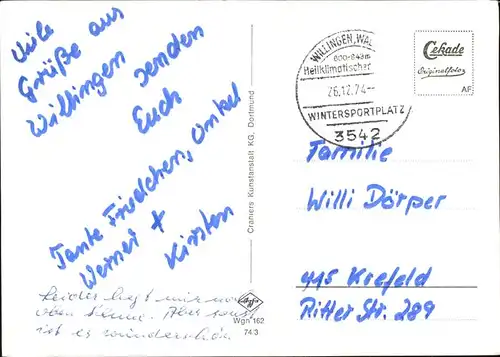 Viele
Grüße aus
Willingen senden
Euch
Tante Friedchen, Onkel
Werner +
Kirsten
Leider liegt nur
oben Aber sonst
ist es wunderschön
Craniers Kunstanstalt KG, Dortmund
Agfa
Wgn 162
74/3
WILLINGEN, WAL
800-843m
Heilklimatischer
26.12.74
WINTERSPORTPLATZ
3542
Cekade
Originalfoto
AF
Familie
Willi Dörper
415 Krefeld
Ritter Str. 289